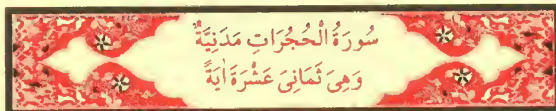 سُورَةُ الْحُجُرَاتِ مَدَنِيَّةٌ
وَهِىَ ثَمَانِىَ عَشْرَةَ اٰيَةً